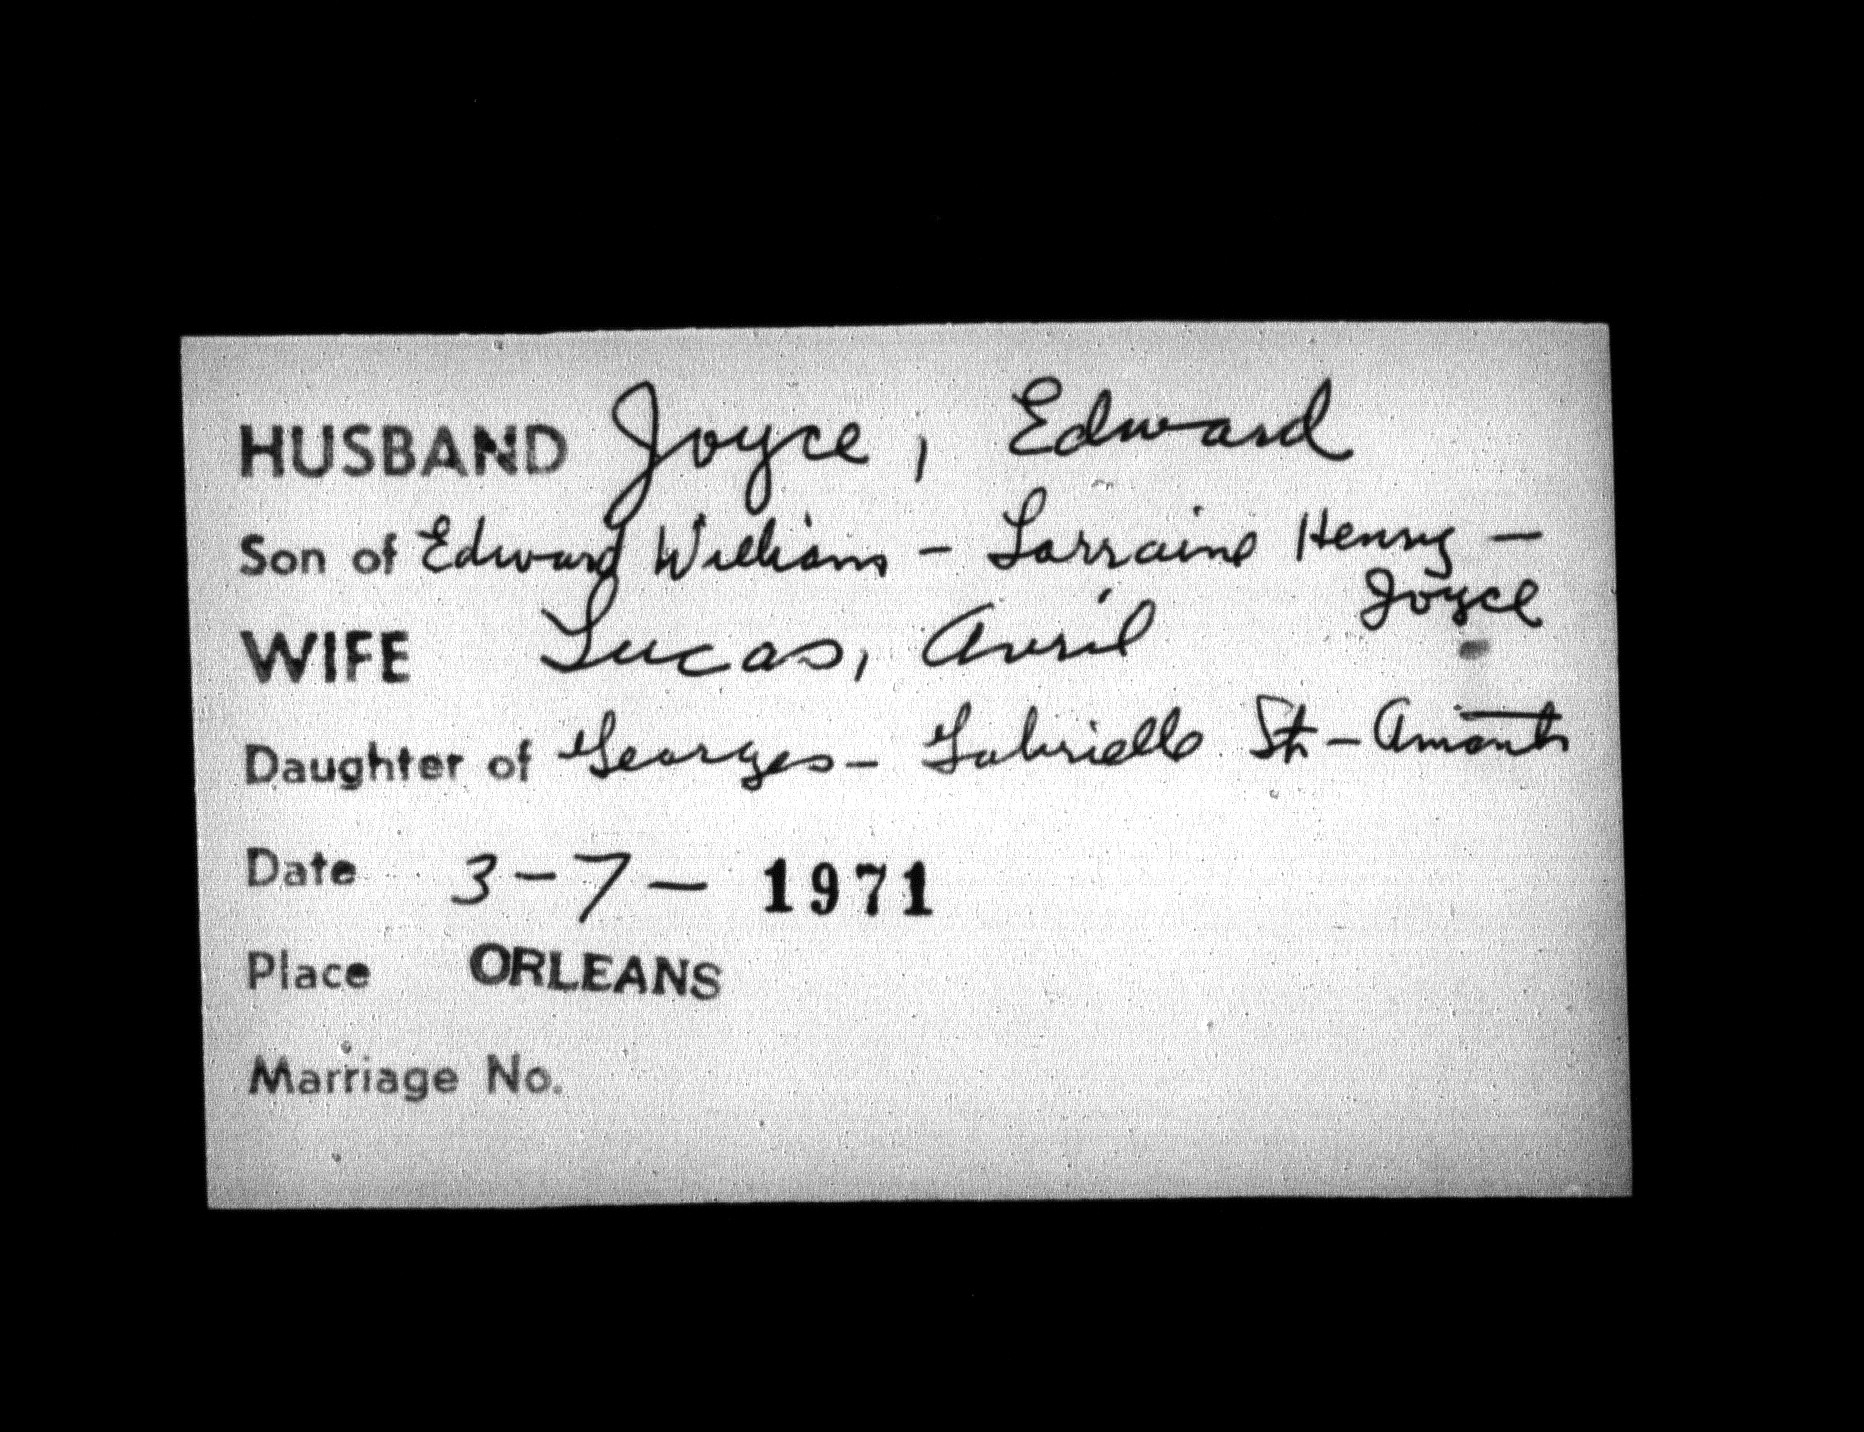 HUSBAND Joyce, Edward
Son of Edward William - Lorraine Henry -
Joyce
WIFE Lucas, Avril
Daughter of Georges - Gabrielle St-Amant
Date 3-7- 1971
Place ORLEANS
Marriage No.